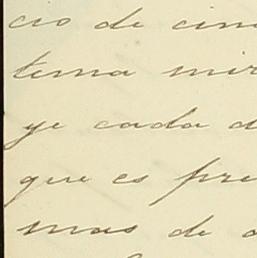 cio de cin
tema mir
ye cada d
que es pre
mas de a